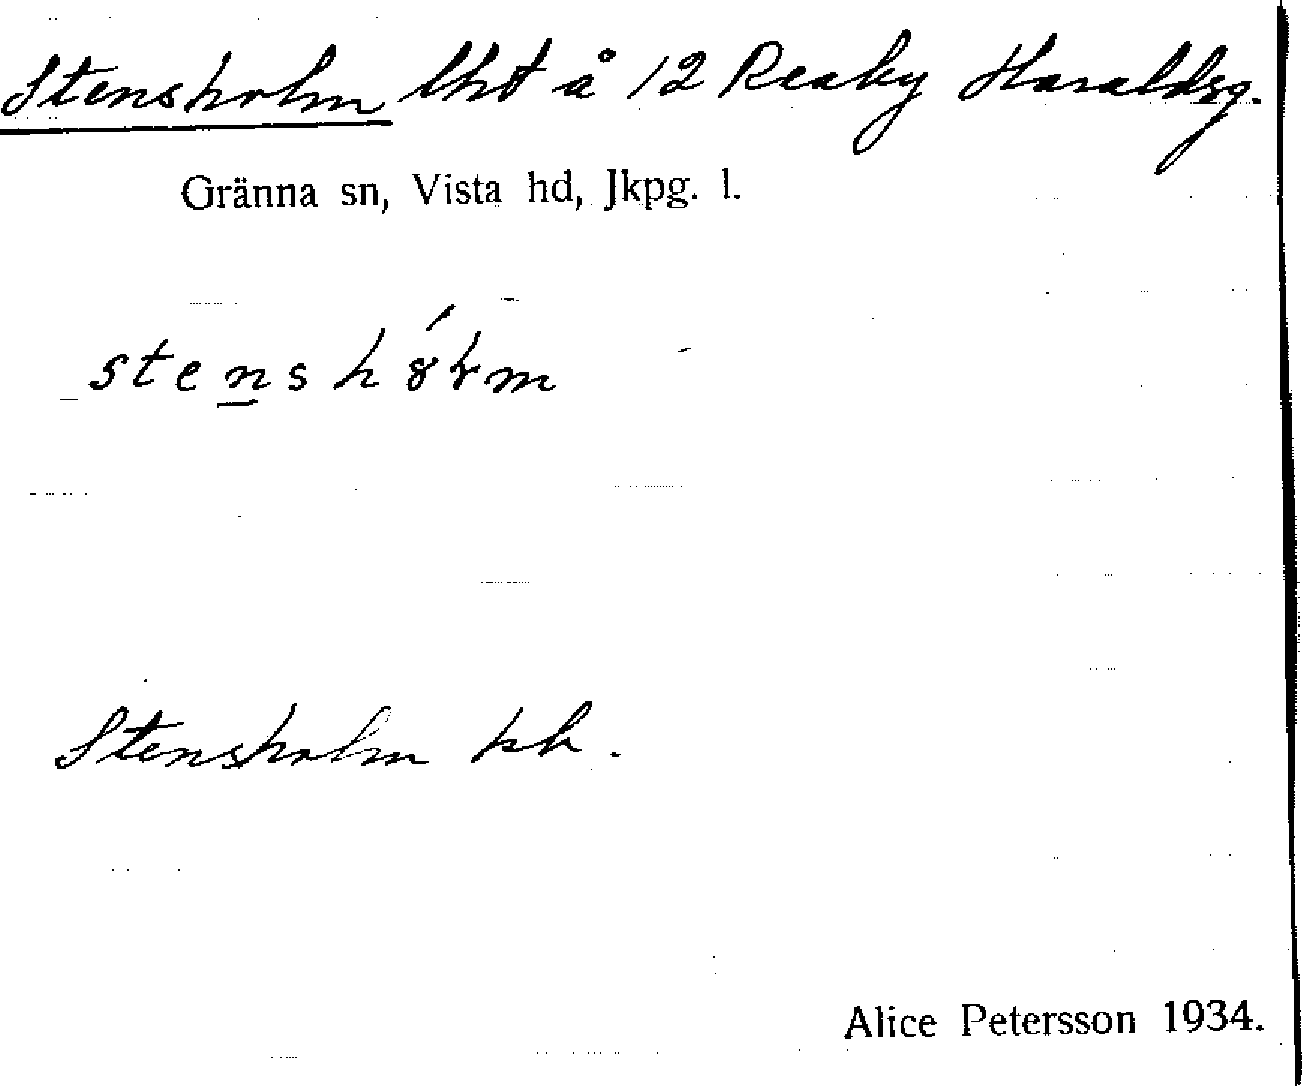 Stensholm lht å 12 Reaby Haraldsg.
Gränna sn, Vista hd, Jkpg. l.
Stensholm kh.
Alice Petersson 1934.